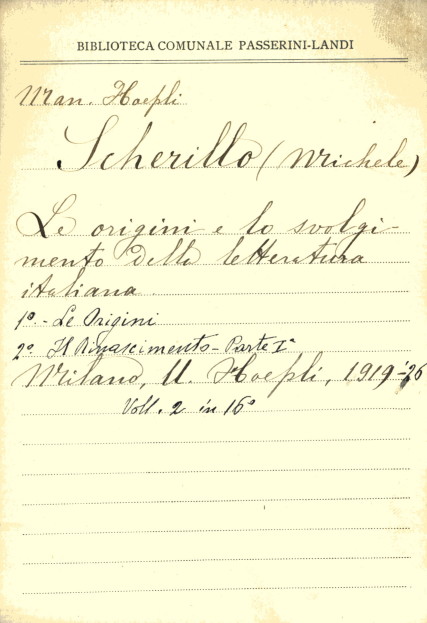 BIBLIOTECA COMUNALE PASSERINI-LANDI
Man. Hoepli
Scherillo (Michele)
Le origini e lo svolgi-
mento della letteratura
italiana
1º. - Le Origini
2º. Il Rinascimento - Parte Iª
Milano, U. Hoepli, 1919-26
Voll. 2 in 16º